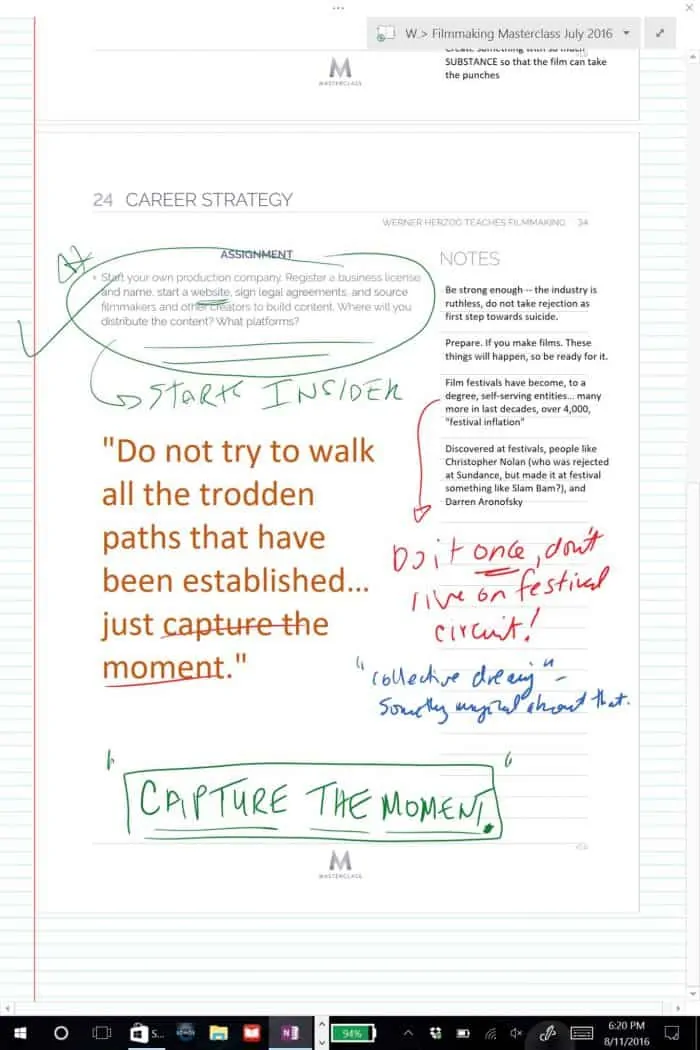 W.> Filmmaking Masterclass July 2016
SUBSTANCE so that the film can take
the punches
M
MASTERCLASS
24 CAREER STRATEGY
WERNER HERZOG TEACHES FILMMAKING 34
ASSIGNMENT
NOTES
• Start your own production company. Register a business license
and name, start a website, sign legal agreements, and source
filmmakers and other creators to build content. Where will you
distribute the content? What platforms?
START INSIDER
Be strong enough -- the industry is
ruthless, do not take rejection as
first step towards suicide.
Prepare. If you make films. These
things will happen, so be ready for it.
Film festivals have become, to a
degree, self-serving entities... many
more in last decades, over 4,000,
"festival inflation"
Discovered at festivals, people like
Christopher Nolan (who was rejected
at Sundance, but made it at festival
something like Slam Bam?), and
Darren Aronofsky
"Do not try to walk
all the trodden
paths that have
been established...
just capture the
moment."
Do it once, don't
live on festival
circuit!
"collective dreaming" –
Something magical about that.
"CAPTURE THE MOMENT."
M
MASTERCLASS
S...
94%
6:20 PM
8/11/2016